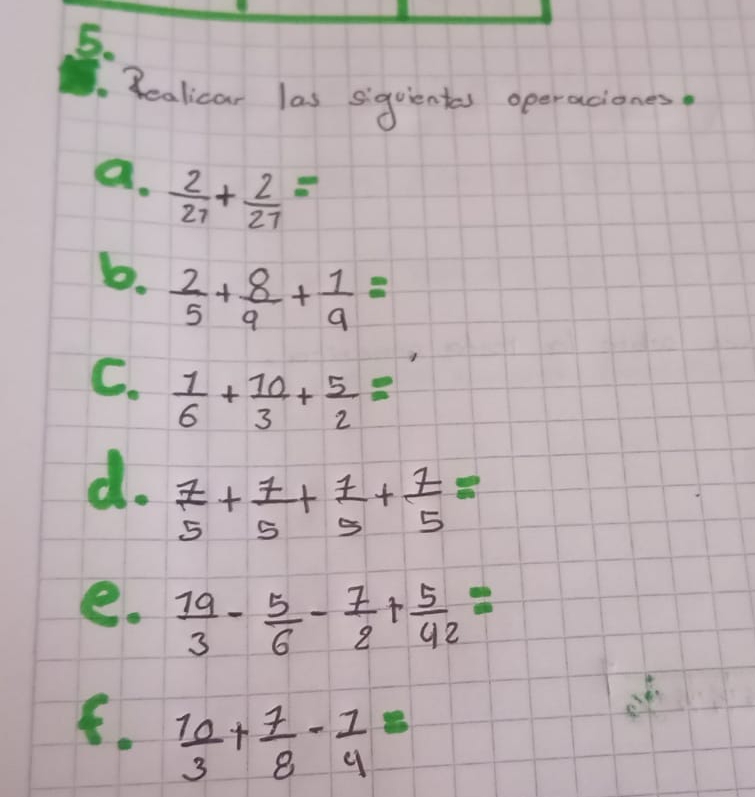 5.
Realicar las siguientes operaciones.
a. 2/21 + 2/21 =
b. 2/5 + 8/9 + 1/9 =
c. 1/6 + 10/3 + 5/2 =
d. 7/5 + 7/5 + 7/5 + 7/5 =
e. 19/3 - 5/6 - 7/2 + 5/42 =
f. 10/3 + 7/8 - 1/4 =